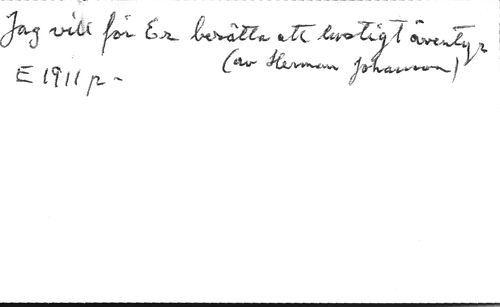 Jag vill för Er berätta ett lustigt äventyr
(av Herman Johansson)
E 1911 p -